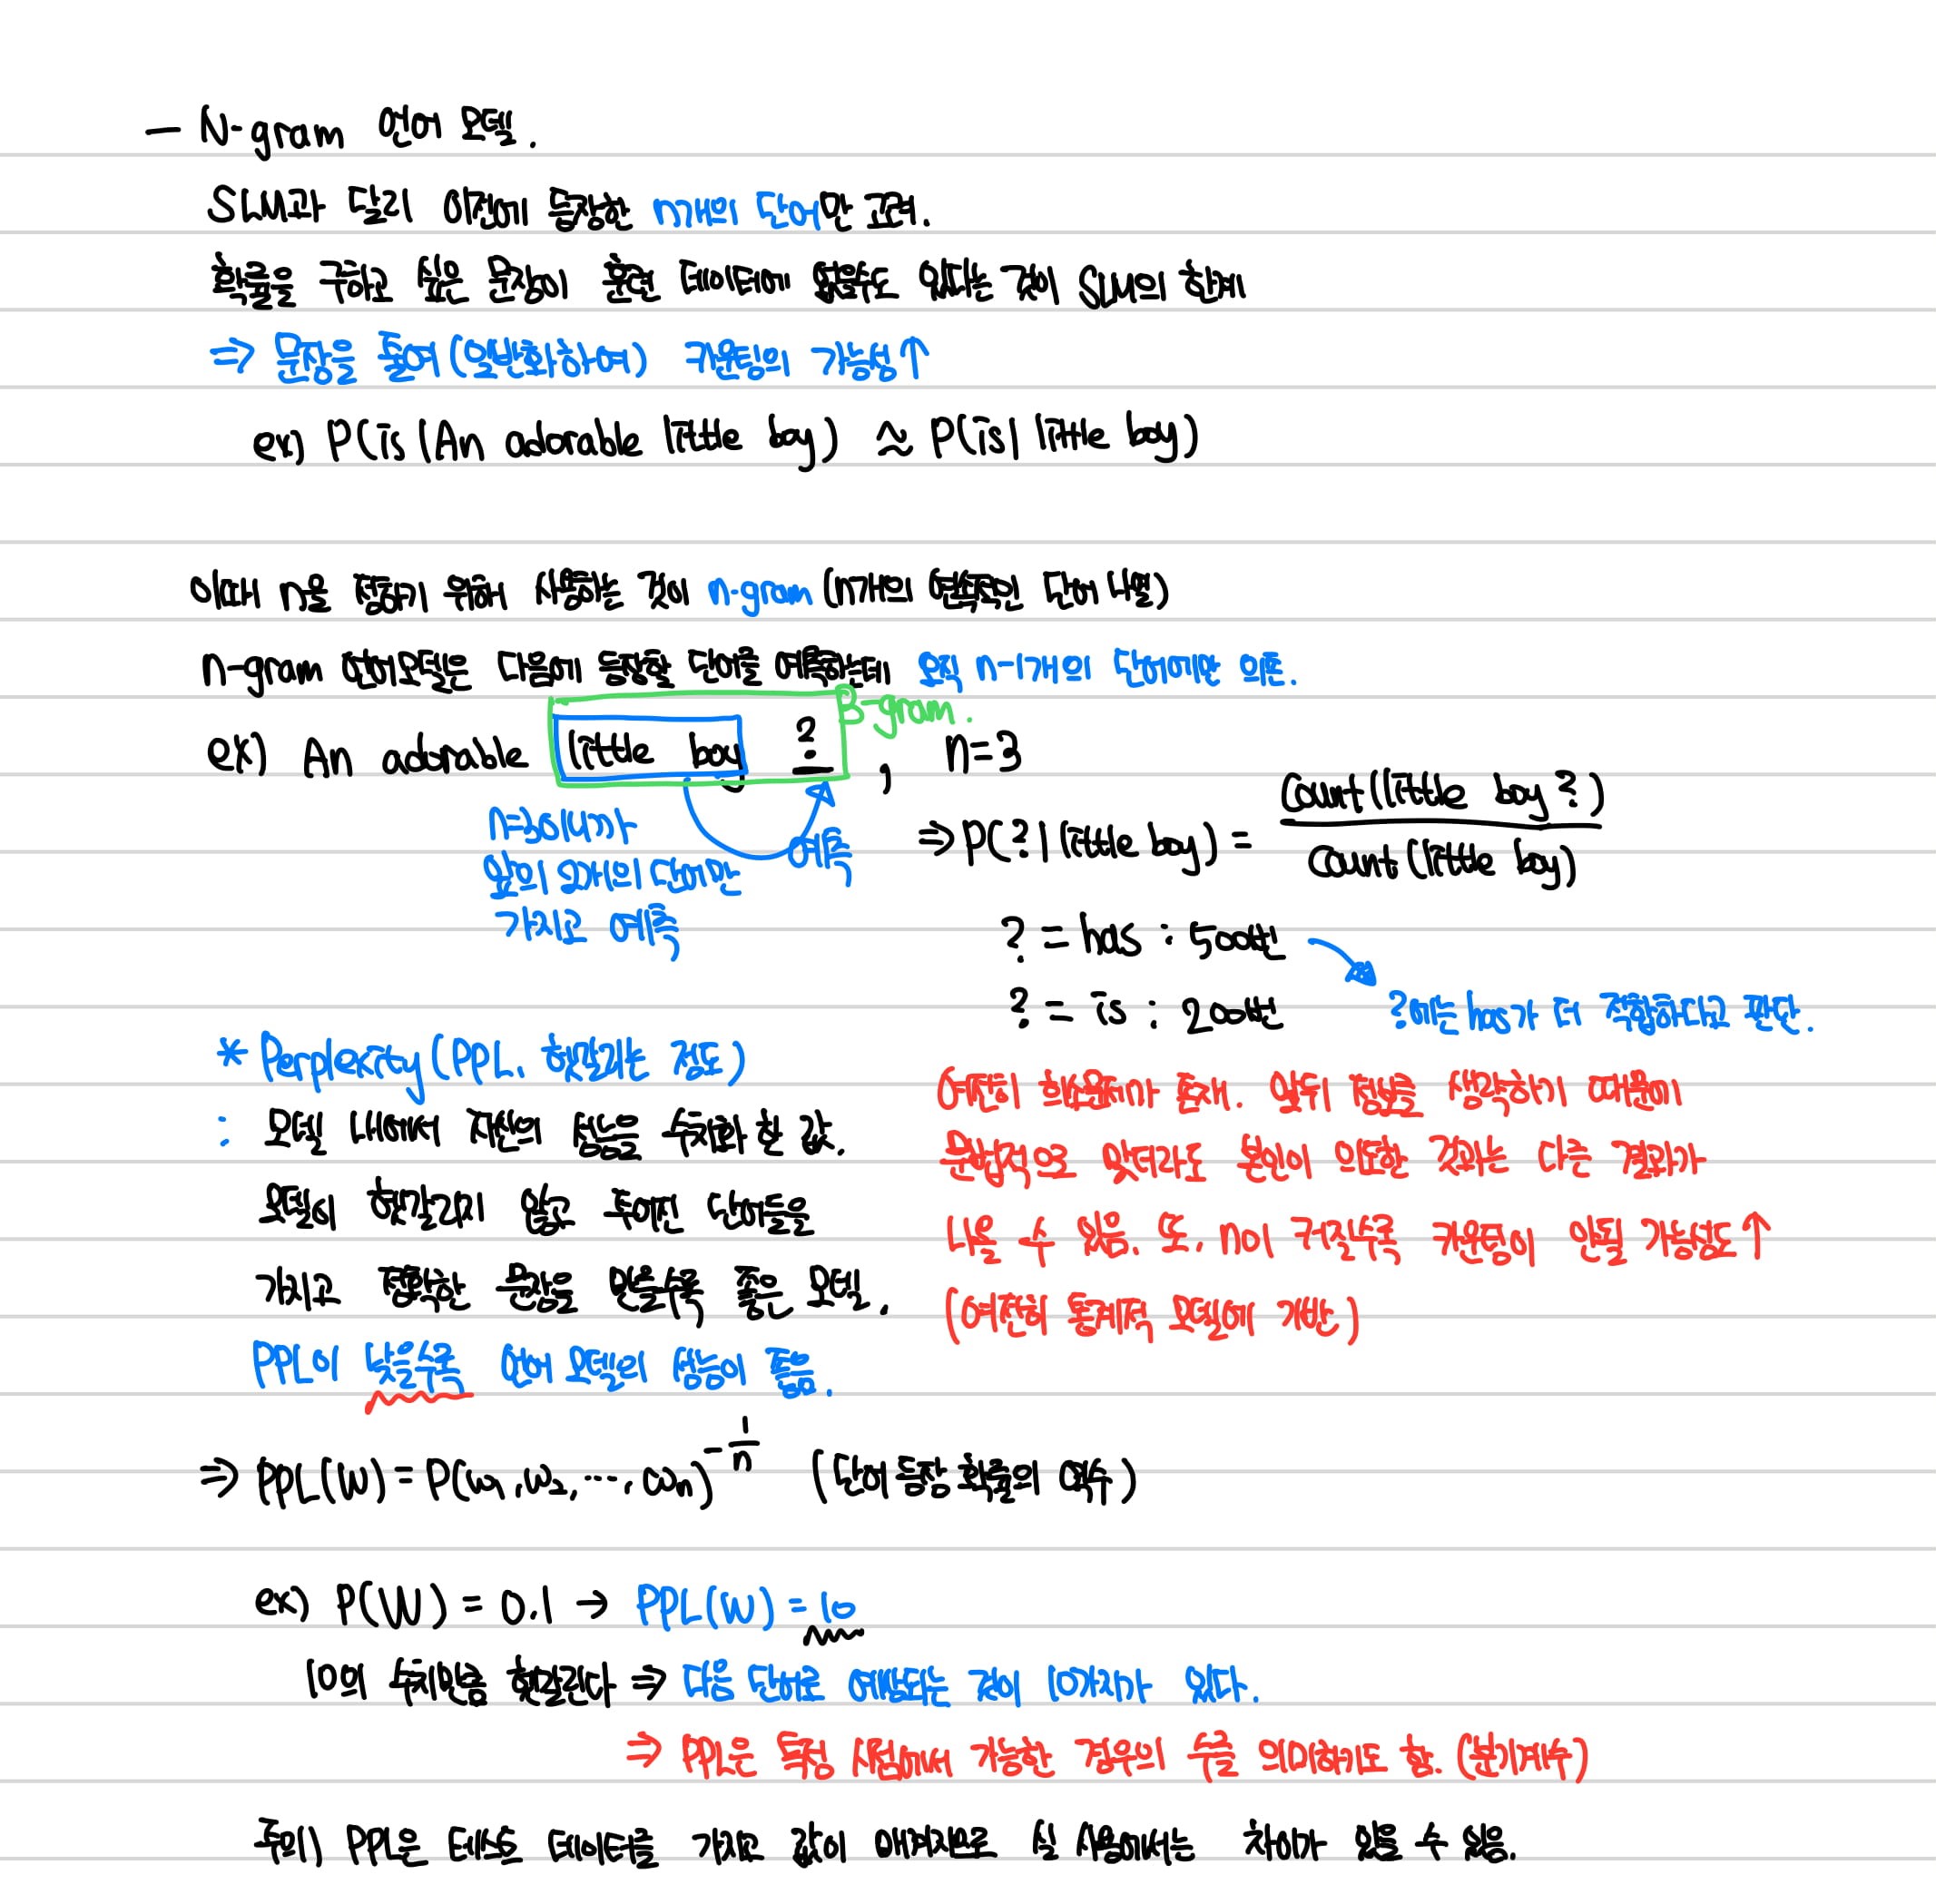 — N-gram 언어 모델.
SLM과 달리 이전에 등장한 n개의 단어만 고려.
확률을 구하고 싶은 문장이 훈련 데이터에 없을수도 있다는 것이 SLM의 한계
⇒ 문장을 줄여(일반화하여) 카운팅의 가능성↑
ex) P(is|An adorable little boy) ≈ P(is|little boy)
이때 n을 정하기 위해 사용하는 것이 n-gram (n개의 연속적인 단어 나열)
n-gram 언어모델은 다음에 등장할 단어를 예측하는데 오직 n-1개의 단어에만 의존.
3-gram.
ex) An adorable little boy ? , n=3
n=3이니까
앞의 2개의 단어만
가지고 예측
예측
⇒ P(?|little boy) = count(little boy ?)
count(little boy)
? = has : 500번
? = is : 200번
?에는 has가 더 적합하다고 판단.
여전히 희소문제가 존재. 앞뒤 정보를 생략하기 때문에
문법적으로 맞더라도 본인이 의도한 것과는 다른 결과가
나올 수 있음. 또, n이 커질수록 카운팅이 안될 가능성도↑
(여전히 통계적 모델에 기반)
* Perplexity (PPL, 헷갈리는 정도)
: 모델 내에서 자신의 성능을 수치화 한 값.
모델이 헷갈리지 않고 주어진 단어들을
가지고 정확한 문장을 만들수록 좋은 모델.
PPL이 낮을수록 언어 모델의 성능이 좋음.
⇒ PPL(W) = P(w₁, w₂, ..., wₙ)^-1/n (단어 등장 확률의 역수)
ex) P(W) = 0.1 → PPL(W) = 10
10의 수치만큼 헷갈린다 ⇒ 다음 단어로 예상되는 것이 10가지가 있다.
⇒ PPL은 특정 시점에서 가능한 경우의 수를 의미하기도 함. (분기계수)
주의) PPL은 테스트 데이터를 가지고 값이 매겨지므로 실 사용에서는 차이가 있을 수 있음.